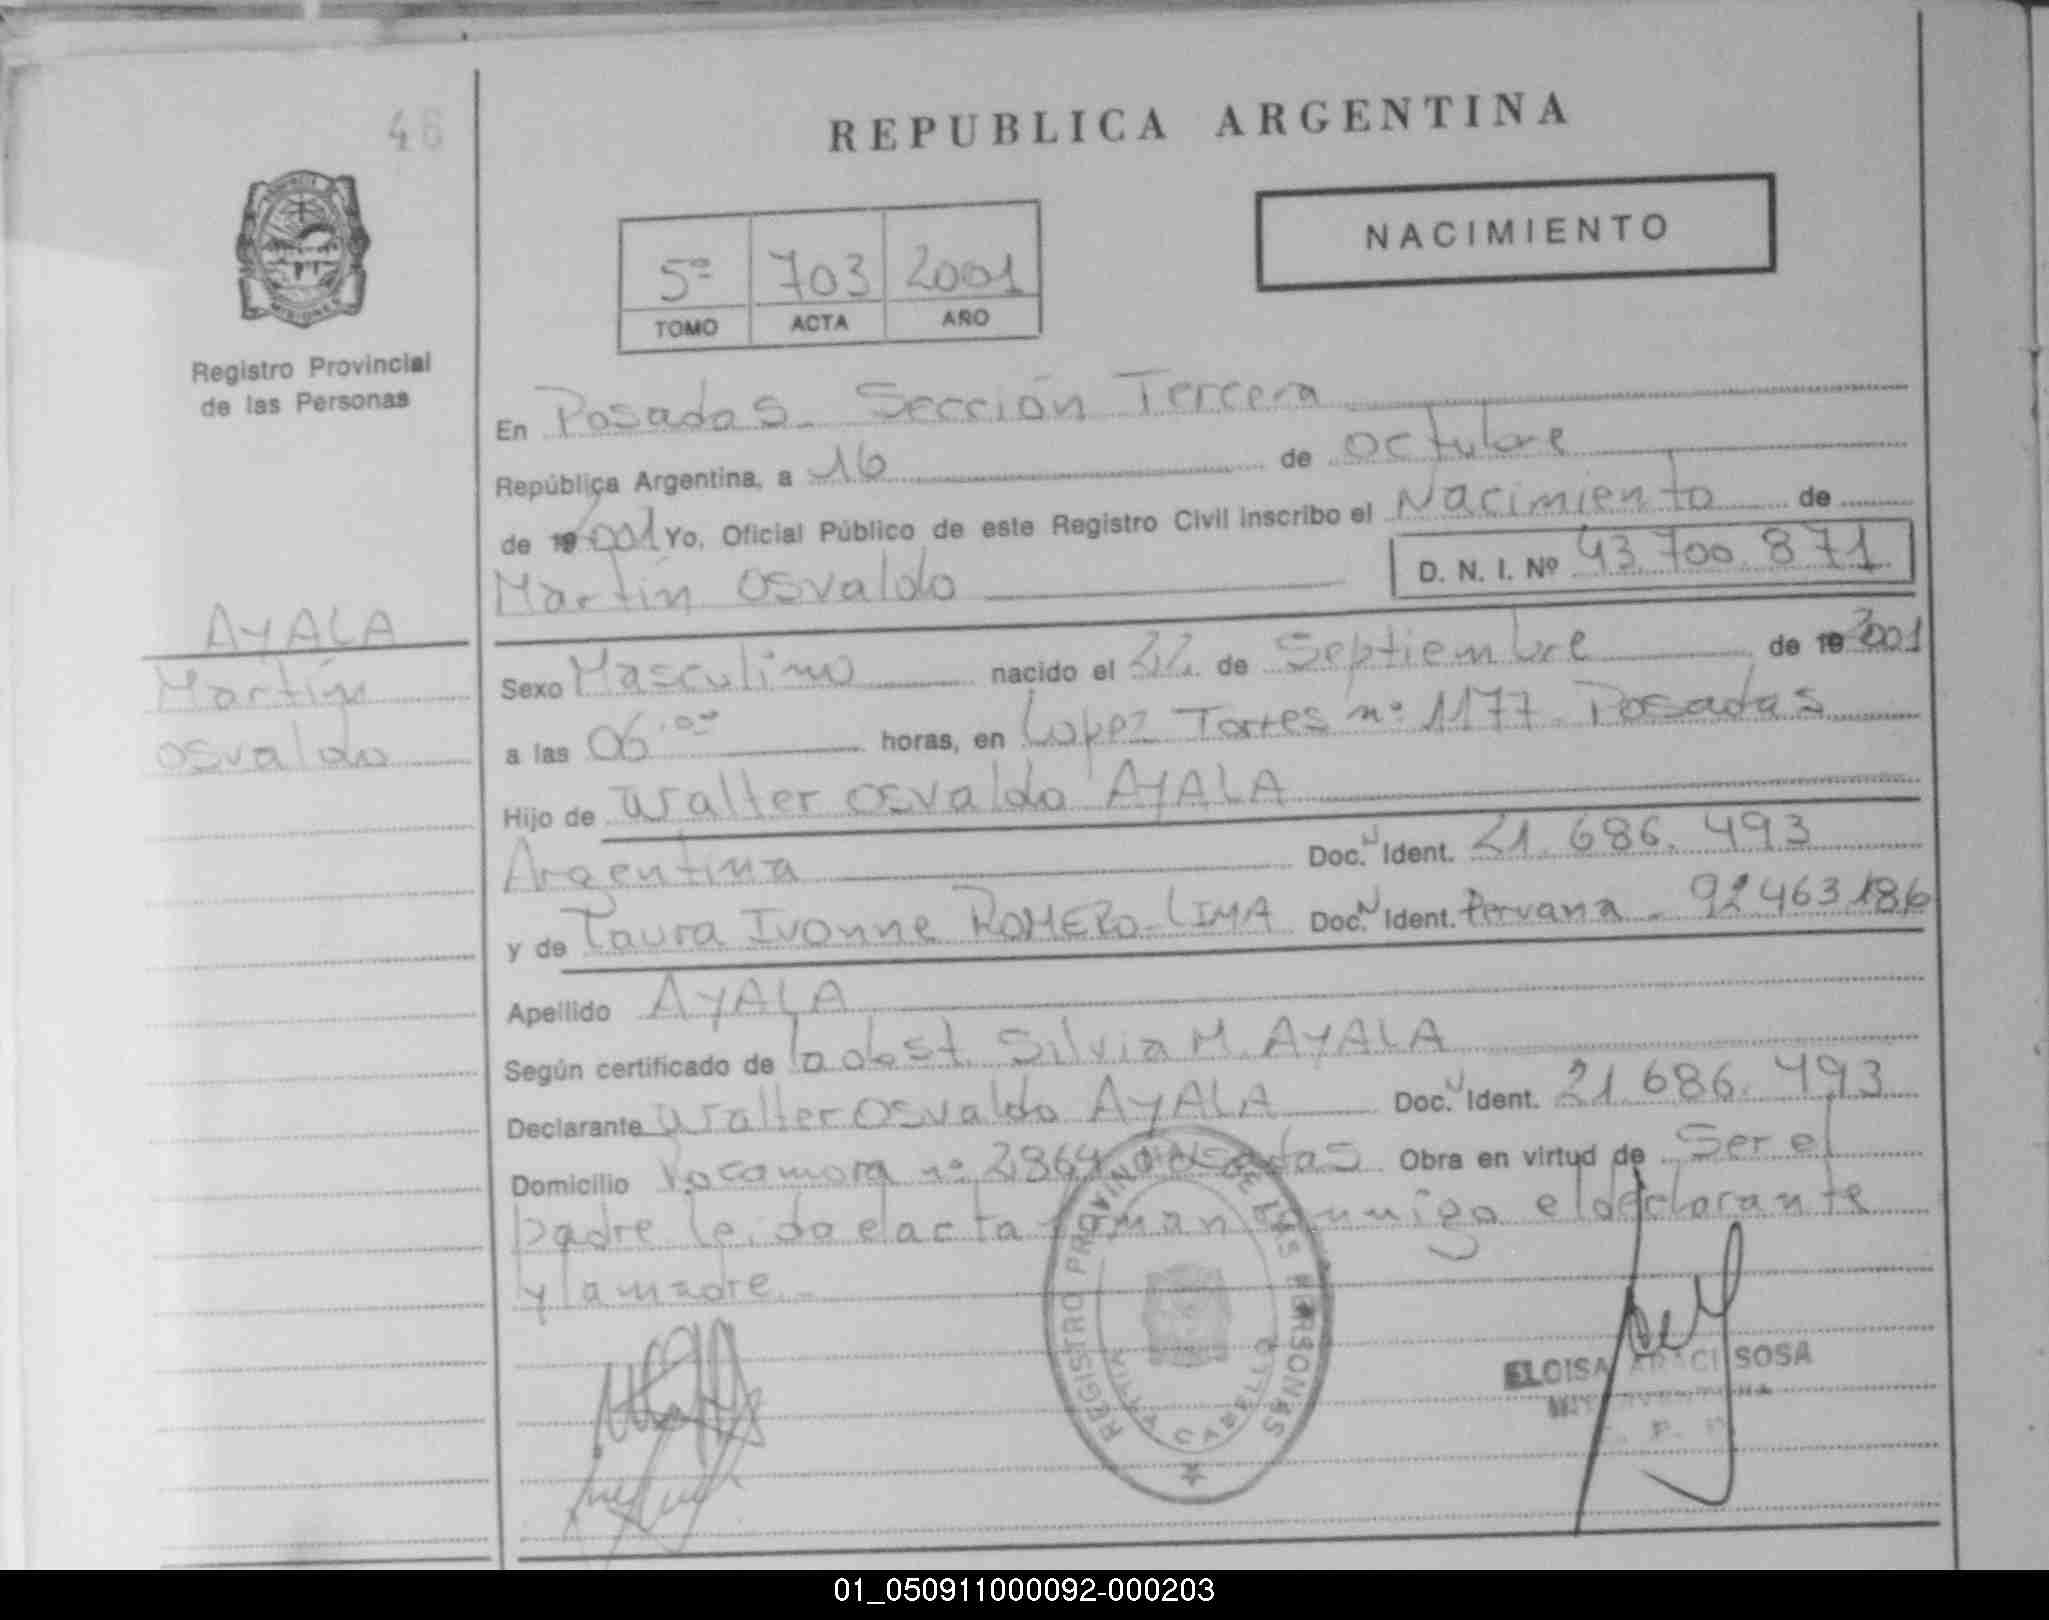 46
REPUBLICA ARGENTINA
NACIMIENTO
5º 703 2001
TOMO ACTA AÑO
Registro Provincial
de las Personas
En Posadas - Sección Tercera
República Argentina, a 16 de octubre
de 2001 Yo, Oficial Público de este Registro Civil inscribo el Nacimiento de
Martín Osvaldo D. N. I. Nº 43.700.871
AYALA
Martín
Osvaldo
Sexo Masculino nacido el 22 de Septiembre de 19 2001
a las 06.00 horas, en Lopez Torres nº 1177 Posadas
Hijo de Walter Osvaldo AYALA
Argentina Doc. N Ident. 21.686.493
y de Laura Ivonne ROMERO-LIMA Doc. N Ident. Peruana - 92463186
Apellido AYALA
Según certificado de la obst. Silvia M. AYALA
Declarante Walter Osvaldo AYALA Doc. N Ident. 21.686.493
Domicilio Rocamora nº 2864 Posadas Obra en virtud de Ser el
padre leída el acta firman conmigo el declarante
y la madre.-
REGISTRO PROVINCIAL DE LAS PERSONAS
ELOISA ARACI SOSA
01_050911000092-000203